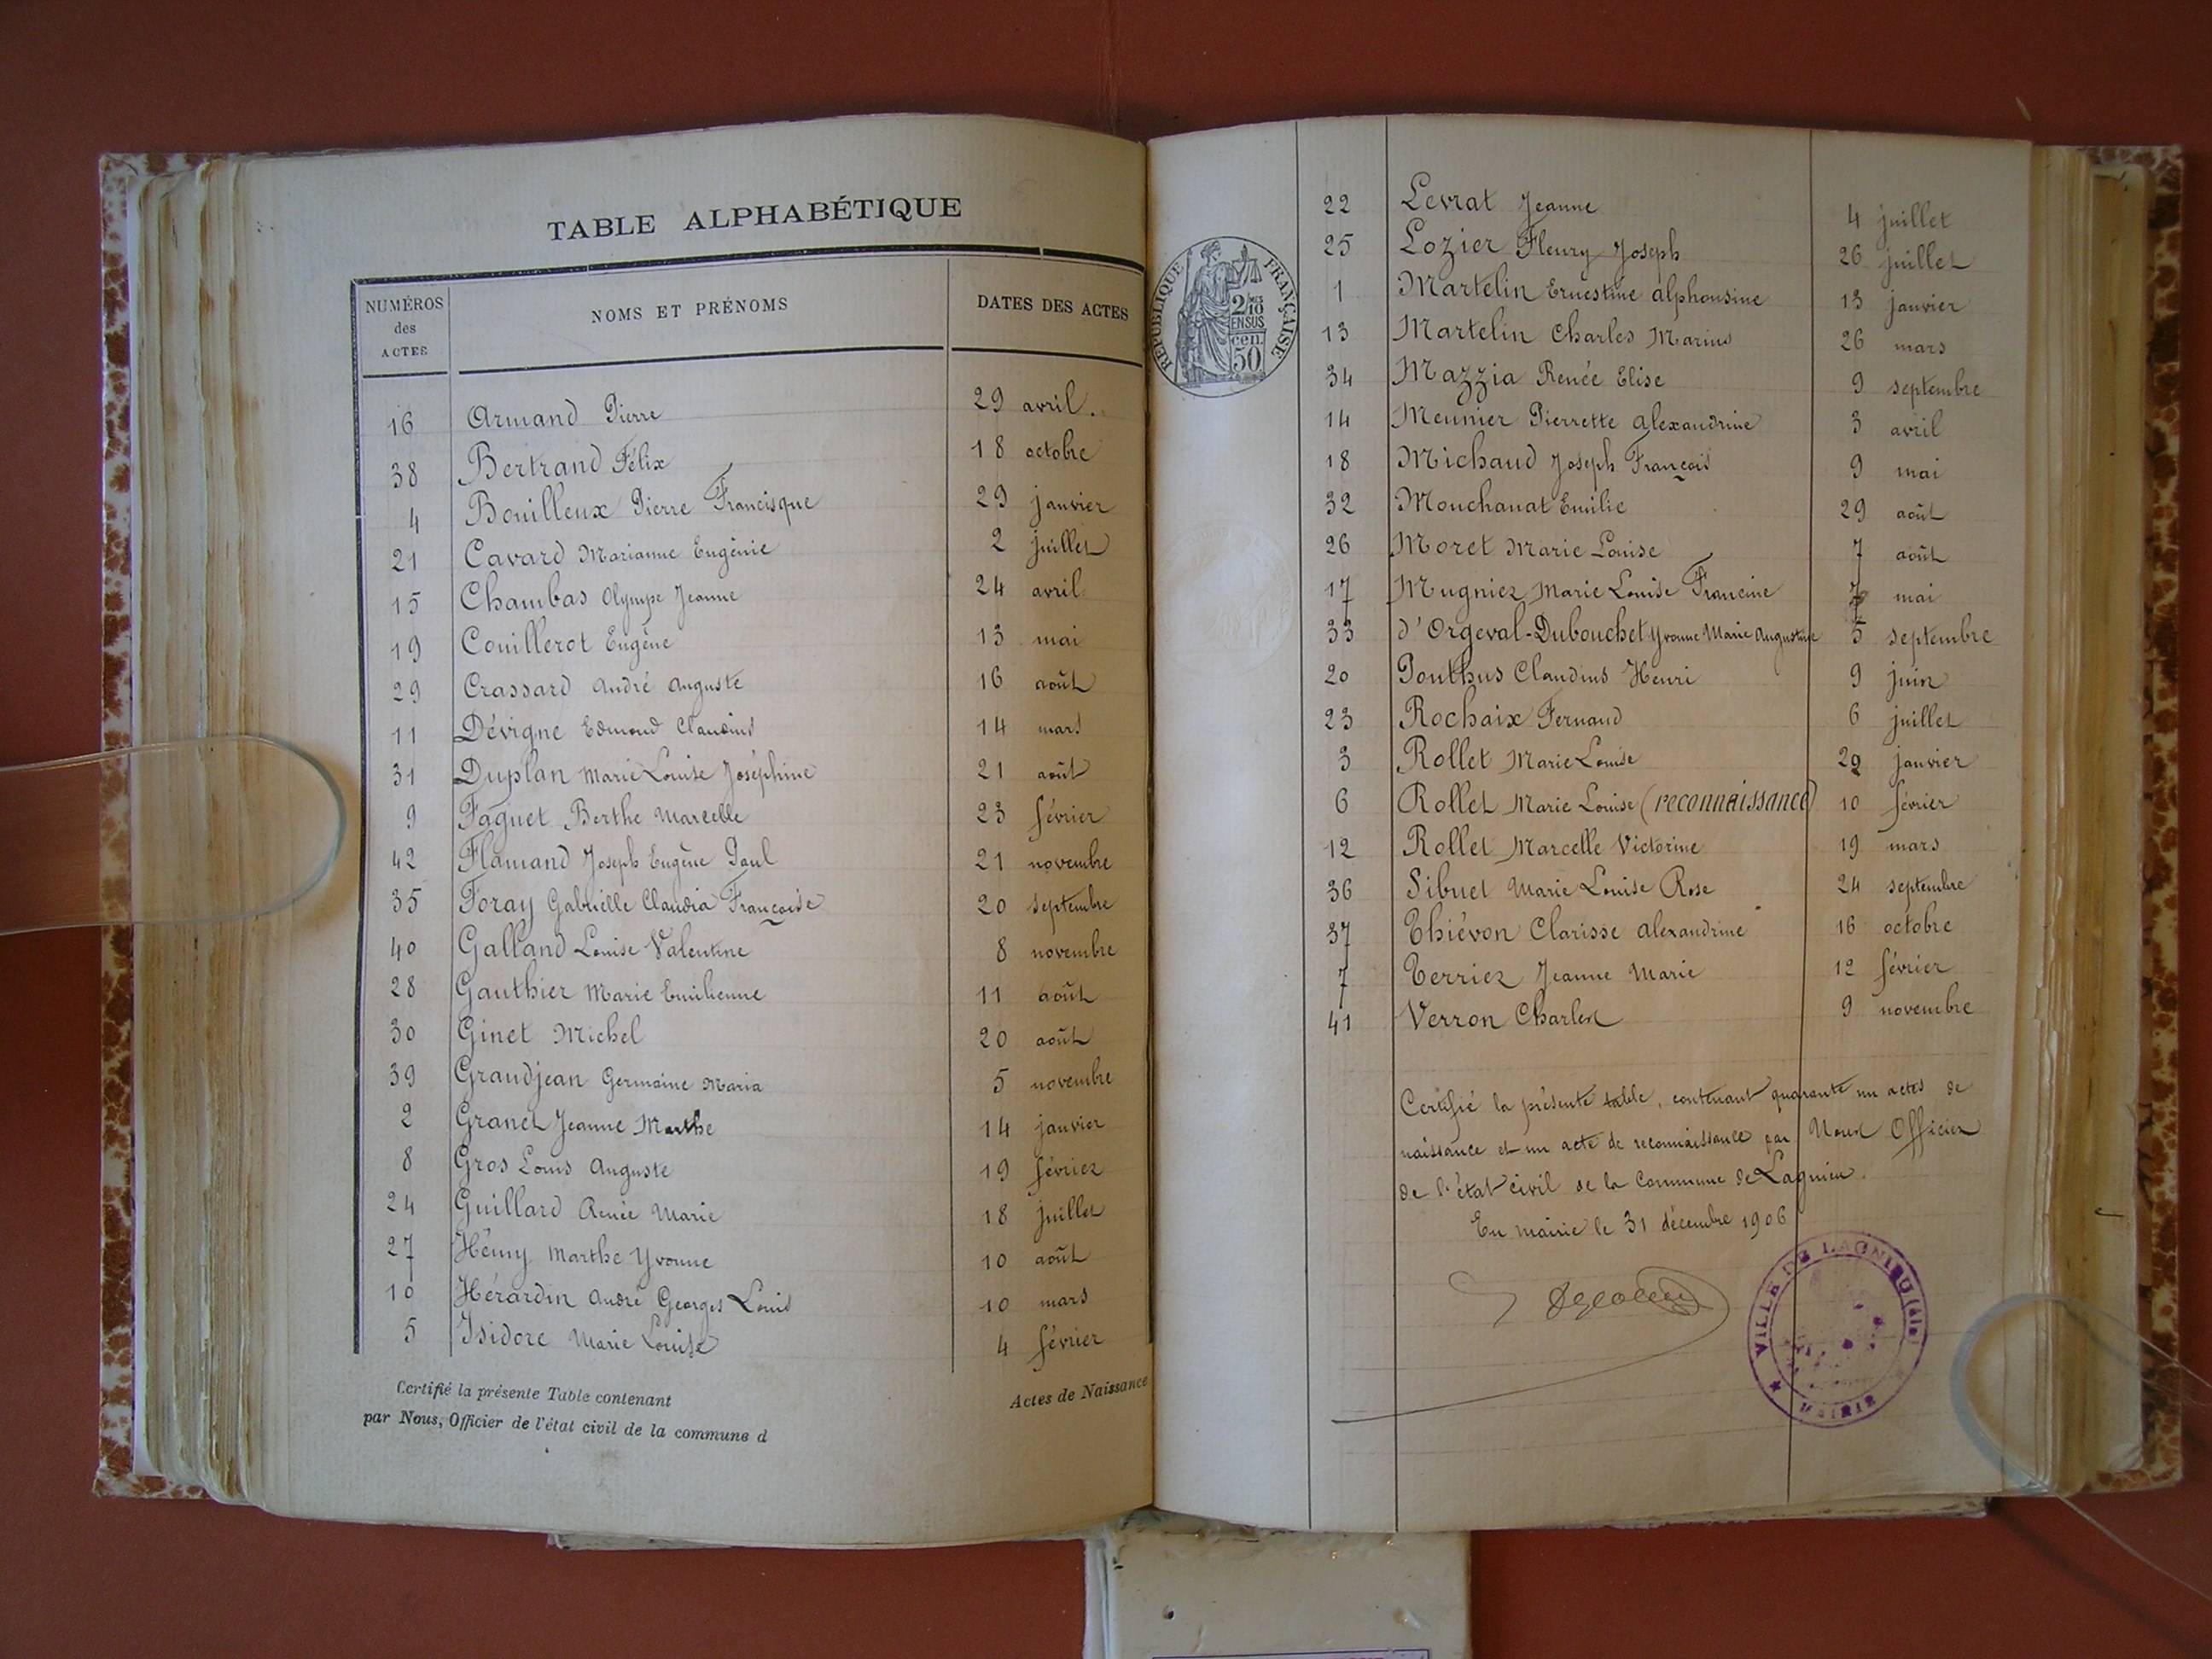 TABLE ALPHABÉTIQUE
NUMÉROS des ACTES NOMS ET PRÉNOMS DATES DES ACTES
16 Armand Pierre 29 avril.
38 Bertrand Félix 18 octobre
4 Bouilleux Pierre Francisque 29 janvier
21 Cavard Marianne Eugénie 2 juillet
15 Chambas Olympe Jeanne 24 avril
19 Couillerot Eugène 13 mai
29 Crassard André Auguste 16 août
11 Dévigne Edmond Claudius 14 mars
31 Duplan Marie Louise Joséphine 21 août
9 Faguet Berthe Marcelle 23 février
42 Flamand Joseph Eugène Paul 21 novembre
35 Foray Gabrielle Claudia Françoise 20 septembre
40 Galland Louise Valentine 8 novembre
28 Gauthier Marie Emilienne 11 août
30 Ginet Michel 20 août
39 Grandjean Germaine Maria 5 novembre
2 Granet Jeanne Marthe 14 janvier
8 Gros Louis Auguste 19 février
24 Guillard Renée Marie 18 juillet
27 Hémy Marthe Yvonne 10 août
10 Hérardin André Georges Louis 10 mars
5 Isidore Marie Louise 4 février
Certifié la présente Table contenant Actes de Naissance
par Nous, Officier de l'état civil de la commune d
RÉPUBLIQUE FRANÇAISE
2/10
EN SUS
50 cen.
22 Levrat Jeanne 4 juillet
25 Lozier Fleury Joseph 26 juillet
1 Martelin Ernestine Alphonsine 13 janvier
13 Martelin Charles Marius 26 mars
34 Mazzia Renée Elise 9 septembre
14 Meunier Pierrette Alexandrine 3 avril
18 Michaud Joseph François 9 mai
32 Mouchanat Emilie 29 août
26 Moret Marie Louise 7 août
17 Mugnier Marie Louise Francine 7 mai
33 d'Orgeval-Dubouchet Yvonne Marie Augustine 5 septembre
20 Ponthus Claudius Henri 9 juin
23 Rochaix Fernand 6 juillet
3 Rollet Marie Louise 29 janvier
6 Rollet Marie Louise (reconnaissance) 10 février
12 Rollet Marcelle Victorine 19 mars
36 Sibuet Marie Louise Rose 24 septembre
37 Thiévon Clarisse Alexandrine 16 octobre
7 Terrier Jeanne Marie 12 février
41 Verron Charles 9 novembre
Certifié la présente table, contenant quarante un actes de
naissance et un acte de reconnaissance par Nous Officier
de l'état civil de la Commune de Lagnieu.
En mairie le 31 décembre 1906
VILLE DE LAGNIEU (Ain)
MAIRIE